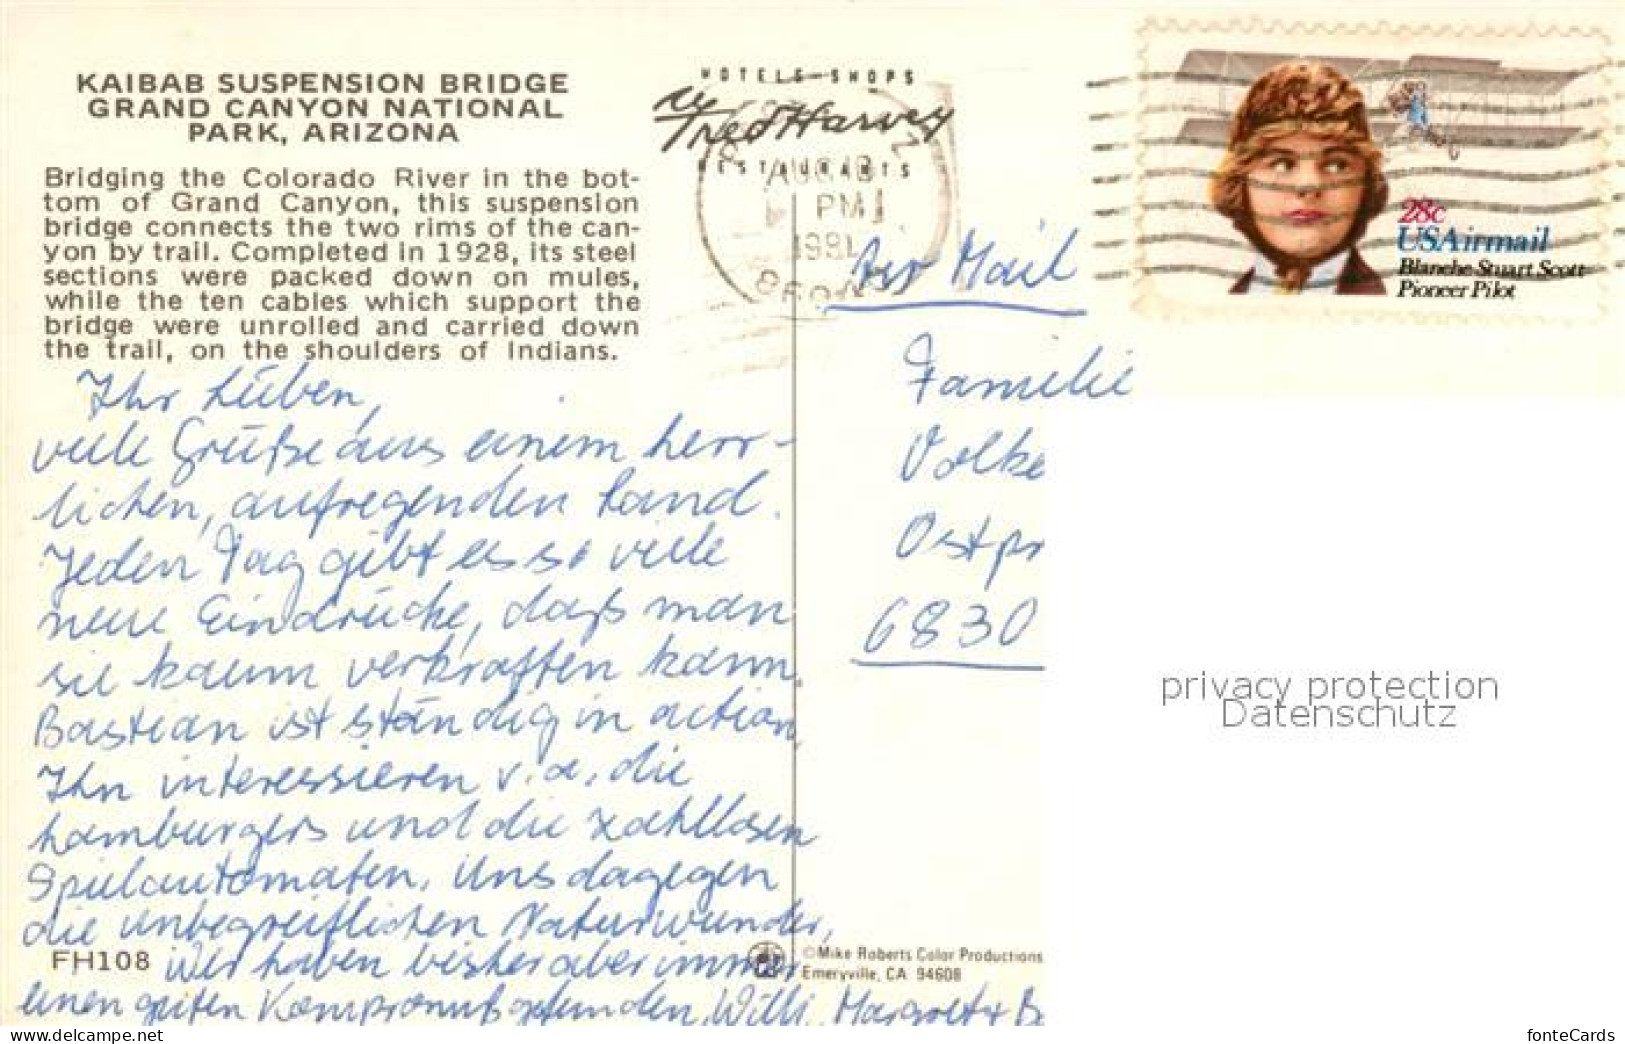 KAIBAB SUSPENSION BRIDGE
GRAND CANYON NATIONAL
PARK, ARIZONA
Bridging the Colorado River in the bot-
tom of Grand Canyon, this suspension
bridge connects the two rims of the can-
yon by trail. Completed in 1928, its steel
sections were packed down on mules,
while the ten cables which support the
bridge were unrolled and carried down
the trail, on the shoulders of Indians.
Ihr Lieben,
viele Grüße aus einem herr-
lichen, aufregenden Land.
Jeden Tag gibt es so viele
neue Eindrücke, daß man
sie kaum verkraften kann.
Bastian ist ständig in action
Ihn interessieren v.a. die
hamburgers und die zahllosen
Spielautomaten. Uns dagegen
die unbegreiflichen Naturwunder,
Wir haben bisher aber immer
einen guten Kompromiß gefunden, Willi, Margret + B
FH108
HOTELS-SHOPS
Fred Harvey
RESTAURANTS
AUG
PM
1981
28c
USAirmail
Blanche Stuart Scott
Pioneer Pilot
Air Mail
Familie
Volke
Ostpr
6830
©Mike Roberts Color Productions
Emeryville, CA 94608
privacy protection
Datenschutz
www.ansichtskarten-center.de
fonteCards